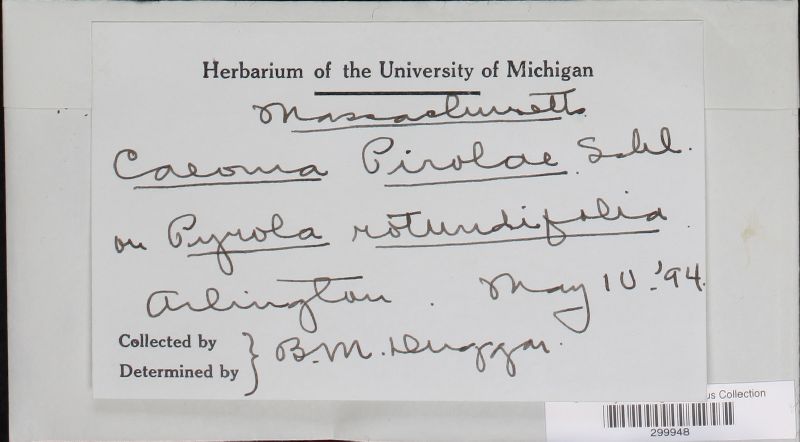 Herbarium of the University of Michigan
Massachusetts
Caeoma Pirolae Schl.
on Pyrola rotundifolia
Arlington. May 10-'94.
Collected by
Determined by } B.M. Duggar.
us Collection
299948